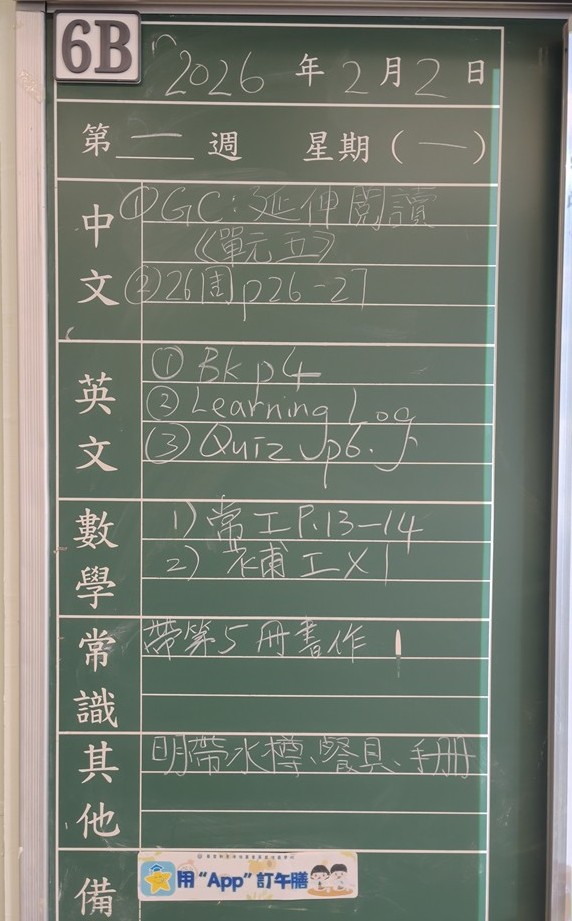 6B
2026 年 2 月 2 日
第 一 週 星期 ( 一 )
中文
① GC: 延伸閱讀
《單元五》
② 26周 p26-27
英文
① Bk p4
② Learning Log
③ Quiz p6.
數學
1) 常工 P.13-14
2) 補工 X 1
常識
帶第5冊書作
其他
明帶水樽、餐具、手冊
備
用“App”訂午膳